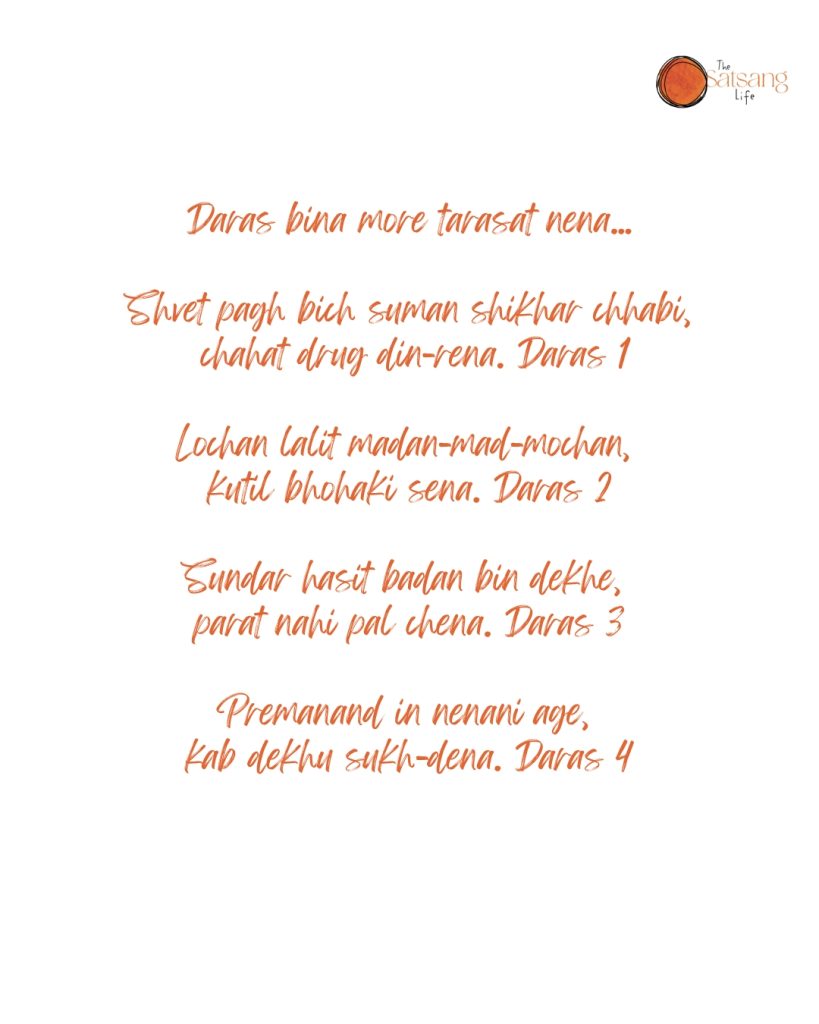 The
Satsang
Life
Daras bina more tarasat nena...
Shvet pagh bich suman shikhar chhabi,
chahat drug din-rena. Daras 1
Lochan lalit madan-mad-mochan,
kutil bhohaki sena. Daras 2
Sundar hasit badan bin dekhe,
parat nahi pal chena. Daras 3
Premanand in nenani age,
kab dekhu sukh-dena. Daras 4